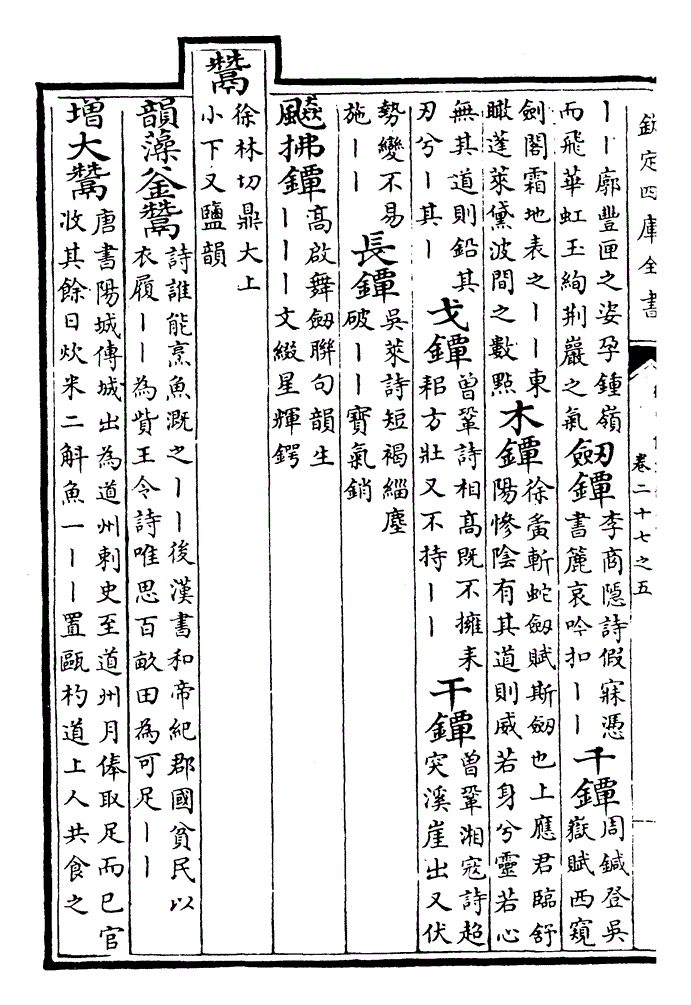 欽定四庫全書
卷二十七之五
丨丨廓豐匣之姿孕鍾嶺
而飛華虹玉絢荆巖之氣
劒鐔
李商隱詩假寐憑
書簏哀吟扣丨丨
千鐔
周鍼登吳
嶽賦西窺
劍閣霜地表之丨丨東
瞰蓬萊黛波間之數點
木鐔
徐夤斬蛇劒賦斯劒也上應君臨舒
陽慘陰有其道則威若身兮靈若心
無其道則鉛其
刃兮丨其丨
戈鐔
曾鞏詩相髙既不擁耒
耜方壯又不持丨丨
干鐔
曾鞏湘寇詩超
突溪崖出又伏
勢變不易
施丨丨
長鐔
吳萊詩短褐緇塵
破丨丨寳氣銷
飈拂鐔
髙啟舞劒聯句韻生
丨丨丨文綴星輝鍔
鬵
徐林切鼎大上
小下又鹽韻
韻藻釜鬵
詩誰能烹魚溉之丨丨後漢書和帝紀郡國貧民以
衣履丨丨為貲王令詩唯思百畝田為可足丨丨
增大鬵
唐書陽城傳城出為道州刺史至道州月俸取足而已官
收其餘日炊米二斛魚一丨丨置甌杓道上人共食之